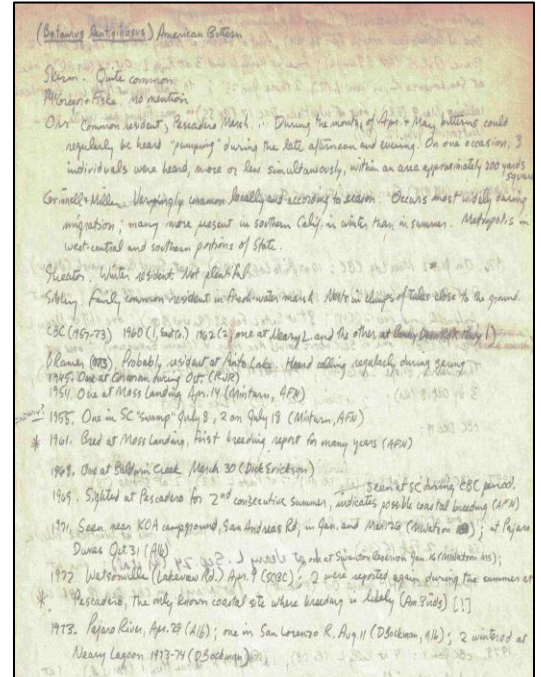 (Botaurus lentiginosus) American Bittern
Skirm. Quite common
McGregor + Fiske. No mention
Orr Common resident, Pescadero Marsh... During the months of Apr. + May, bitterns could
regularly be heard "pumping" during the late afternoon and evening. On one occasion, 3
individuals were heard, more or less simultaneously, within an area approximately 200 yards
square
Grinnell + Miller. Varyingly common locally and according to season. Occurs most widely during
migration; many more present in southern Calif. in winter than in summer. Metropolis in
west-central and southern portions of State.
Streator. Winter resident. Not plentiful.
Sibley. Fairly common resident in fresh-water marsh. Nests in clumps of tules close to the ground.
CBC (1957-73) 1960 (1, 1962 (2; one at Neary L. and the other at Hwy 1)
BRamer (MS) Probably resident at Anto Lake. Heard calling regularly during spring
1945. One at Corcoran during Oct. (RJR)
1954. One at Moss Landing Apr. 14 (Minturn, AFN)
1955. One in SC "swamp" July 3, 2 on July 18 (Minturn, AFN)
* 1961. Bred at Moss Landing, first breeding report for many years (AFN)
1968. One at Baldwin Creek March 30 (Dick Erickson)
seen at SC during CBC period.
1969. Sighted at Pescadero for 2nd consecutive summer, indicates possible coastal breeding (AFN)
1971. Seen near KOA campground, San Andreas Rd, in Jan. and Mar. 26 (MWatson); at Pajaro
Dunes Oct 31 (Alb)
one at Swanton Reservoir Jan. 16 (MWatson MS);
1972 Watsonville (Lakeview Rd.) Apr. 9 (SCBC); 2 were reported again during the summer at
* Pescadero, the only known coastal site where breeding is likely (Am. Birds) [1]
1973. Pajaro River, Apr. 29 (Alb); one in San Lorenzo R. Aug. 11 (DBockman, Alb); 2 wintered at
Neary Lagoon 1973-74 (DBockman)